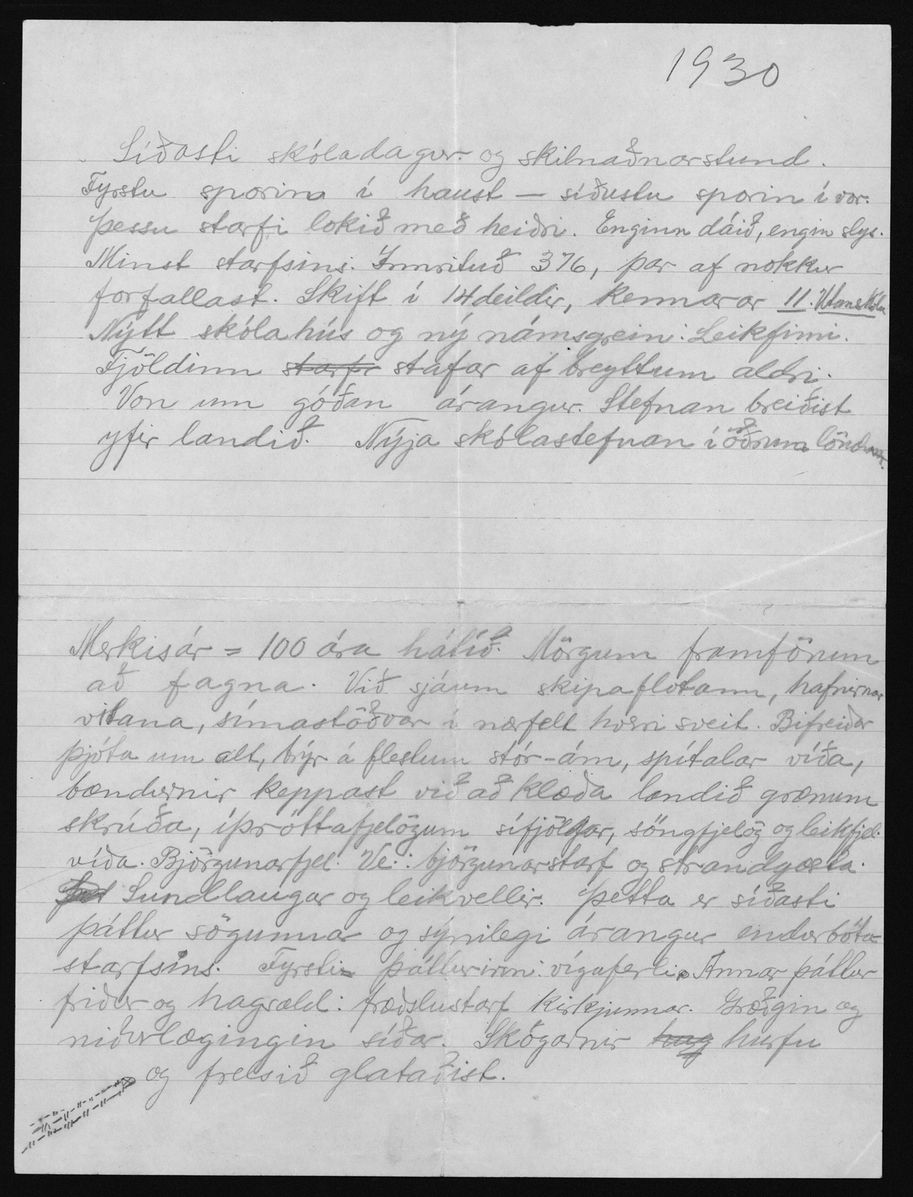 1930
Síðasti skóladagur og skilnaðnarstund.
Fyrstu sporin í haust — síðustu sporin í vor.
Þessu starfi lokið með heiðri. Enginn dáið, engin slys.
Minst starfsins. Innrituð 376, þar af nokkur
forfallast. Skift í 14 deildir, kennarar 11. Utanskóla
Nýtt skólahús og ný námsgrein: Leikfimi.
Fjöldinn starfi stafar af breyttum aldri.
Von um góðan árangur. Stefnan breiðist
yfir landið. Nýja skólastefnan í öðrum löndum.
Merkisár = 100 ára hátíð. Mörgum framförum
að fagna. Við sjáum skipaflotann, hafnirnar
vitana, símastöðvar í nærfelt hverri sveit. Bifreiðar
þjóta um alt, brýr á flestum stór-ám, spítalar víða,
bændurnir keppast við að klæða landið grænum
skrúða, íþróttafjelögum sífjölgar, söngfjelög og leikfjel.
víða. Björgunarfjel. Ve.: björgunarstarf og strandgæsla.
Sundlaugar og leikvellir. Þetta er síðasti
þáttur sögunnar og sýnilegi árangur endurbóta-
starfsins. Fyrsti þátturinn: vígaferli. Annar þáttur
friður og hagsæld: fræðslustarf kirkjunnar. Græðgin og
niðurlægingin síðar. Skógarnir hurfu
og frelsið glataðist.